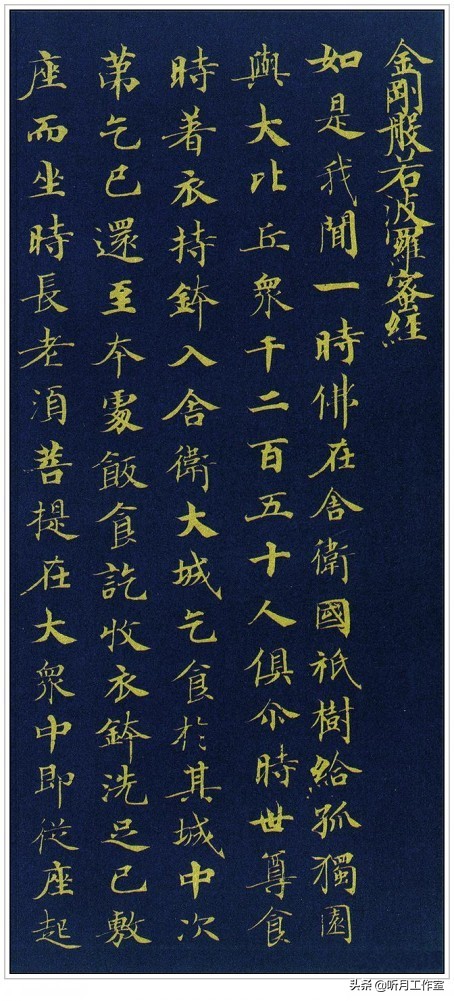 金剛般若波羅蜜經
如是我聞一時佛在舍衛國祇樹給孤獨園
與大比丘衆千二百五十人俱尒時世尊食
時著衣持鉢入舍衛大城乞食於其城中次
苐乞已還至本處飯食訖收衣鉢洗足已敷
座而坐時長老湏菩提在大衆中即従座起
头条 @听月工作室